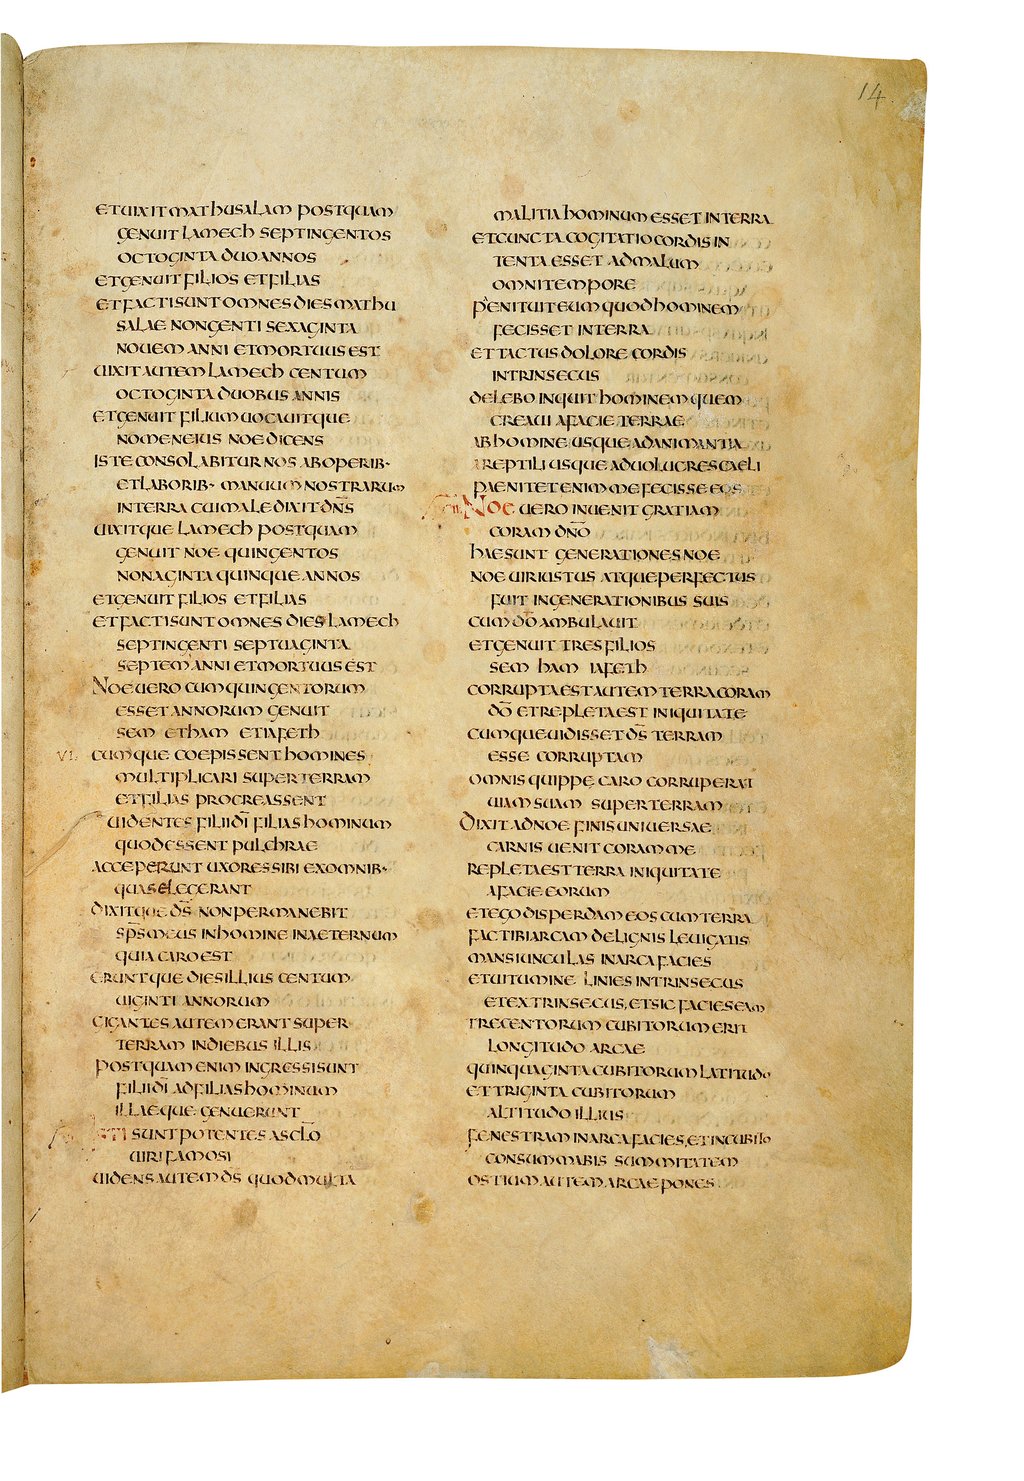 14
ET UIXIT MATHUSALAM POSTQUAM
GENUIT LAMECH SEPTINGENTOS
OCTOGINTA DUO ANNOS
ET GENUIT FILIOS ET FILIAS
ET FACTI SUNT OMNES DIES MATHU
SALAE NONGENTI SEXAGINTA
NOUEM ANNI ET MORTUUS EST
UIXIT AUTEM LAMECH CENTUM
OCTOGINTA DUOBUS ANNIS
ET GENUIT FILIUM UOCAUITQUE
NOMEN EIUS NOE DICENS
ISTE CONSOLABITUR NOS AB OPERIB·
ET LABORIB· MANUUM NOSTRARUM
IN TERRA CUI MALEDIXIT DN̄S
UIXITQUE LAMECH POSTQUAM
GENUIT NOE QUINGENTOS
NONAGINTA QUINQUE ANNOS
ET GENUIT FILIOS ET FILIAS
ET FACTI SUNT OMNES DIES LAMECH
SEPTINGENTI SEPTUAGINTA
SEPTEM ANNI ET MORTUUS EST
NOE UERO CUM QUINGENTORUM
ESSET ANNORUM GENUIT
SEM ET HAM ET IAFETH
VI. CUMQUE COEPISSENT HOMINES
MULTIPLICARI SUPER TERRAM
ET FILIAS PROCREASSENT
UIDENTES FILII DĪ FILIAS HOMINUM
QUOD ESSENT PULCHRAE
ACCEPERUNT UXORES SIBI EX OMNIB·
QUAS ELEGERANT
DIXITQUE D̄S NON PERMANEBIT
SP̄S MEUS IN HOMINE IN AETERNUM
QUIA CARO EST
ERUNTQUE DIES ILLIUS CENTUM
UIGINTI ANNORUM
GIGANTES AUTEM ERANT SUPER
TERRAM IN DIEBUS ILLIS
POSTQUAM ENIM INGRESSI SUNT
FILII DĪ AD FILIAS HOMINUM
ILLAEQUE GENUERUNT
ISTI SUNT POTENTES A SCLO
UIRI FAMOSI
UIDENS AUTEM D̄S QUOD MULTA
MALITIA HOMINUM ESSET IN TERRA
ET CUNCTA COGITATIO CORDIS IN
TENTA ESSET AD MALUM
OMNI TEMPORE
PENITUIT EUM QUOD HOMINEM
FECISSET IN TERRA
ET TACTUS DOLORE CORDIS
INTRINSECUS
DELEBO INQUIT HOMINEM QUEM
CREAUI A FACIE TERRAE
AB HOMINE USQUE AD ANIMANTIA
A REPTILI USQUE AD UOLUCRES CAELI
PAENITET ENIM ME FECISSE EOS
NOE UERO INUENIT GRATIAM
CORAM DN̄O
HAE SUNT GENERATIONES NOE
NOE UIR IUSTUS ATQUE PERFECTUS
FUIT IN GENERATIONIBUS SUIS
CUM DŌ AMBULAUIT
ET GENUIT TRES FILIOS
SEM HAM IAFETH
CORRUPTA EST AUTEM TERRA CORAM
DŌ ET REPLETA EST INIQUITATE
CUMQUE UIDISSET D̄S TERRAM
ESSE CORRUPTAM
OMNIS QUIPPE CARO CORRUPERAT
UIAM SUAM SUPER TERRAM
DIXIT AD NOE FINIS UNIUERSAE
CARNIS UENIT CORAM ME
REPLETA EST TERRA INIQUITATE
A FACIE EORUM
ET EGO DISPERDAM EOS CUM TERRA
FAC TIBI ARCAM DE LIGNIS LEUIGATIS
MANSIUNCULAS IN ARCA FACIES
ET UITUMINE LINIES INTRINSECUS
ET EXTRINSECUS, ET SIC FACIES EAM
TRECENTORUM CUBITORUM ERIT
LONGITUDO ARCAE
QUINQUAGINTA CUBITORUM LATITUDO
ET TRIGINTA CUBITORUM
ALTITUDO ILLIUS
FENESTRAM IN ARCA FACIES, ET IN CUBITO
CONSUMMABIS SUMMITATEM
OSTIUM AUTEM ARCAE PONES